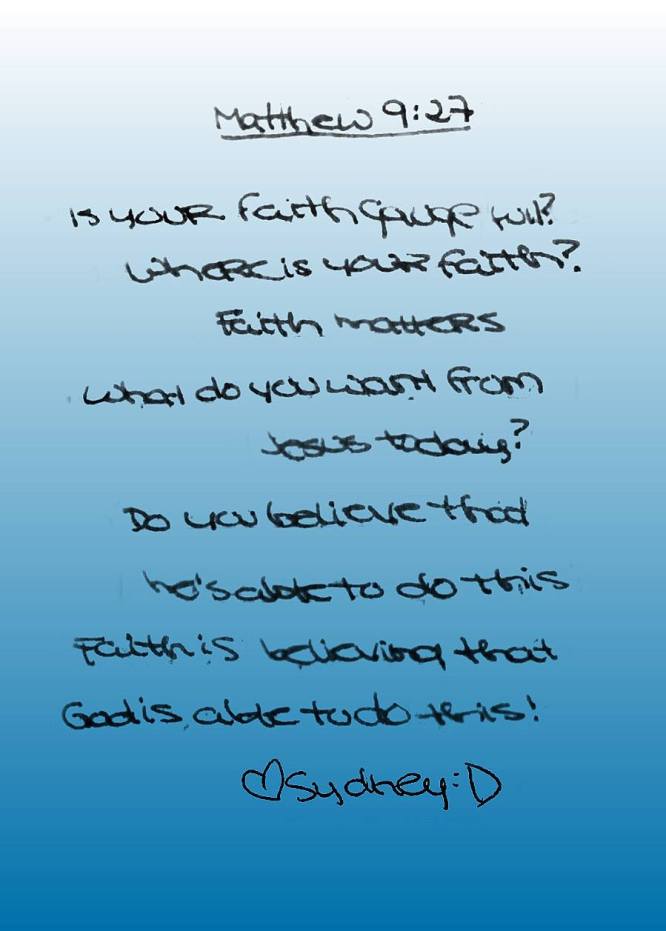 Matthew 9:27
Is your faith gauge full?
Where is your faith?
Faith matters
What do you want from
Jesus today?
Do you believe that
he's able to do this
Faith is believing that
God is able to do this!
♡Sydney:D